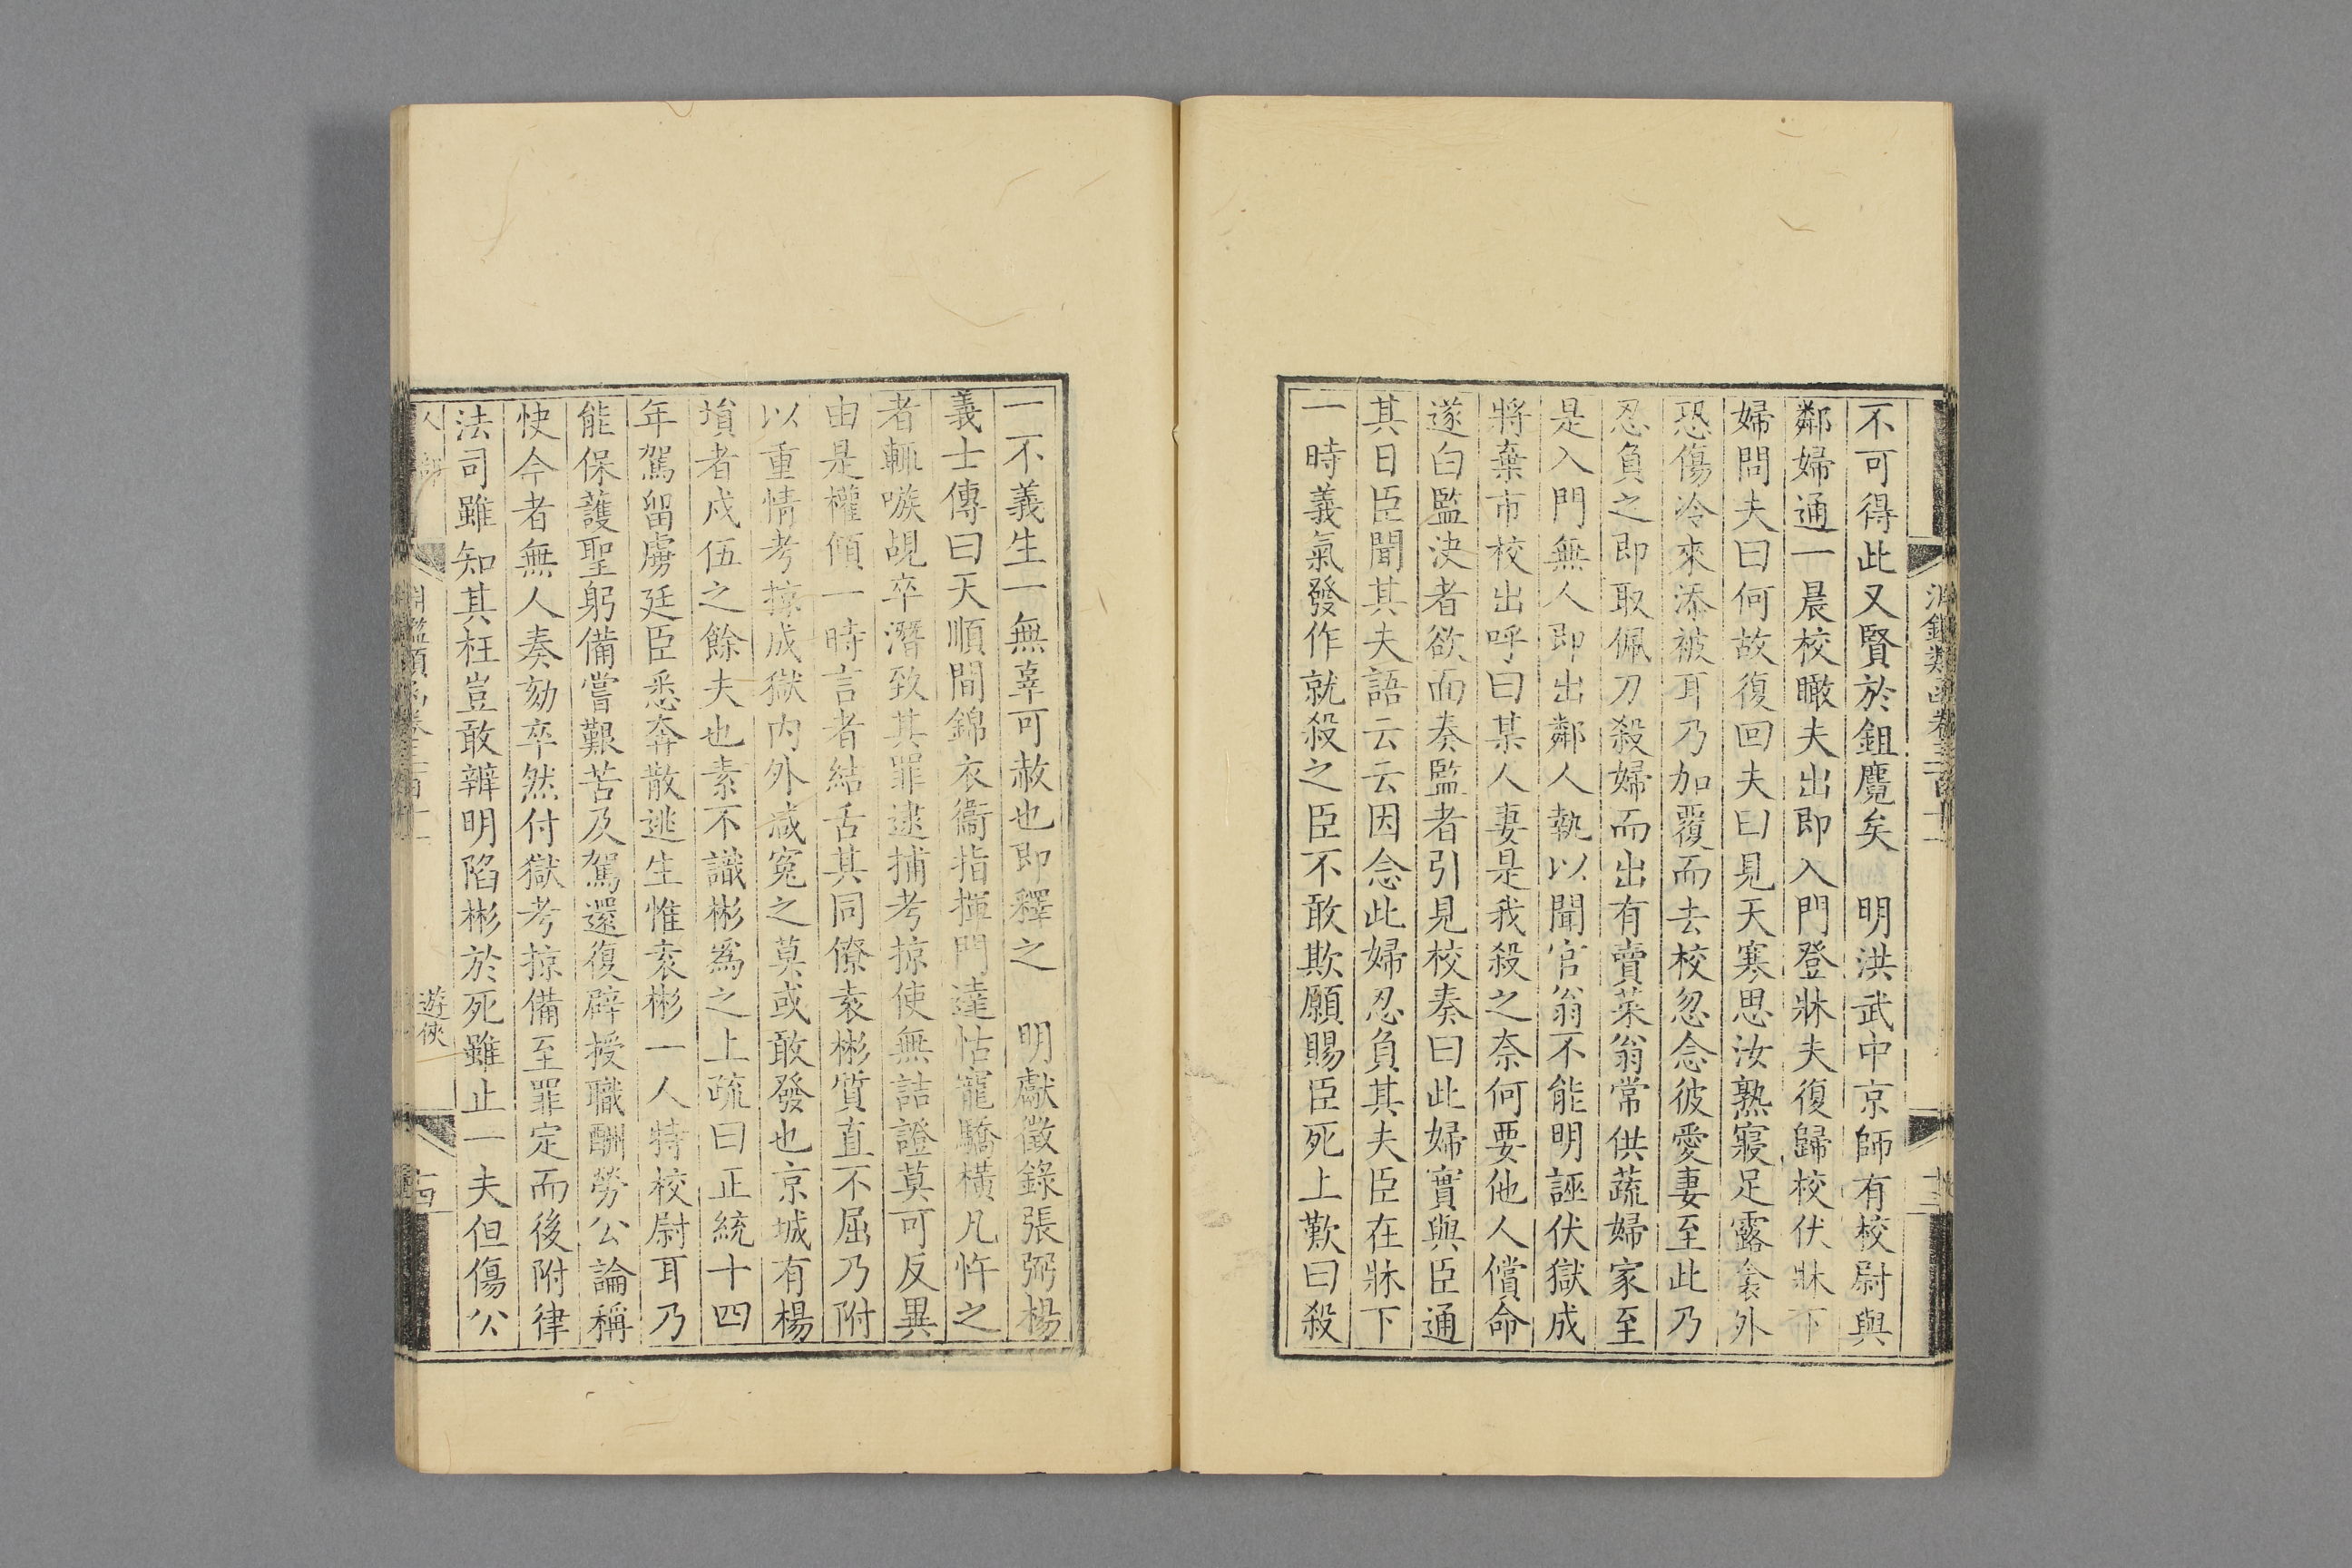 淵鑑類函卷三百十一
十三
不可得此又賢於鉏麑矣　明洪武中京師有校尉與
鄰婦通一晨校瞰夫出即入門登牀夫復歸校伏牀下
婦問夫曰何故復回夫曰見天寒思汝熟寢足露衾外
恐傷冷來添被耳乃加覆而去校忽念彼愛妻至此乃
忍負之即取佩刀殺婦而出有賣菜翁常供蔬婦家至
是入門無人即出鄰人執以聞官翁不能明誣伏獄成
將棄市校出呼曰某人妻是我殺之奈何要他人償命
遂白監決者欲面奏監者引見校奏曰此婦實與臣通
其日臣聞其夫語云云因念此婦忍負其夫臣在牀下
一時義氣發作就殺之臣不敢欺願賜臣死上歎曰殺
一不義生一無辜可赦也即釋之　明獻徵錄張弼楊
義士傳曰天順間錦衣衞指揮門達怙寵驕橫凡忤之
者輒嗾覘卒潛致其罪逮捕考掠使無詰證莫可反異
由是權傾一時言者結舌其同僚袁彬質直不屈乃附
以重情考掠成獄內外咸寃之莫或敢發也京城有楊
塤者戍伍之餘夫也素不識彬爲之上疏曰正統十四
年駕留虜廷臣悉奔散逃生惟袁彬一人特校尉耳乃
能保護聖躬備嘗艱苦及駕還復辟授職酬勞公論稱
快今者無人奏劾卒然付獄考掠備至罪定而後附律
法司雖知其枉豈敢辨明陷彬於死雖止一夫但傷公
人部
淵鑑類函卷三百十一
遊俠
十四